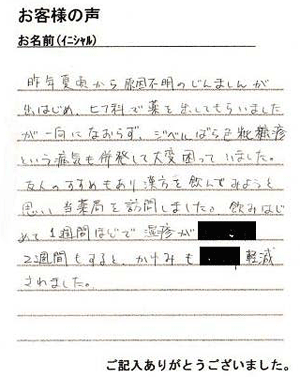 お客様の声
お名前(イニシャル)
昨年夏頃から原因不明のじんましんが
出はじめ、ヒフ科で薬を出してもらいました
が一向になおらず、ジベルばら色粃糠疹
という病気も併発して大変困っていました。
友人のすすめもあり漢方を飲んでみようと
思い当薬局を訪問しました。飲みはじ
めて1週間ほどで湿疹が
2週間もすると、かゆみも 軽減
されました。
ご記入ありがとうございました。